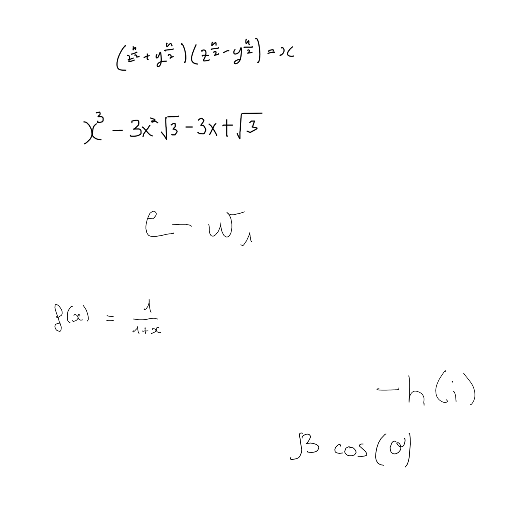 (z^{n/2} + y^{n/2})(z^{n/2} - y^{n/2}) = x
x^3 - 3x^2√3 - 3x + √3
e - w_1
f(x) = 1/(1+x)
-h(i)
β cos(σ)